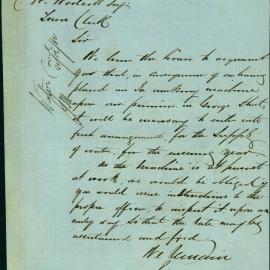 C. H. Woolcott Esq
Town Clerk
Sir
We have the honor to acquaint
you that, in consequence of our having
placed an Ice making machine
upon our premises in George Street,
it will be necessary to enter into
fresh arrangements for the supply
of water for the ensuing year.
As the machine is at present
at work, we would be obliged if
you would issue instructions to the
proper officer to inspect it upon an
early day so that the rate may be
ascertained and fixed
We remain